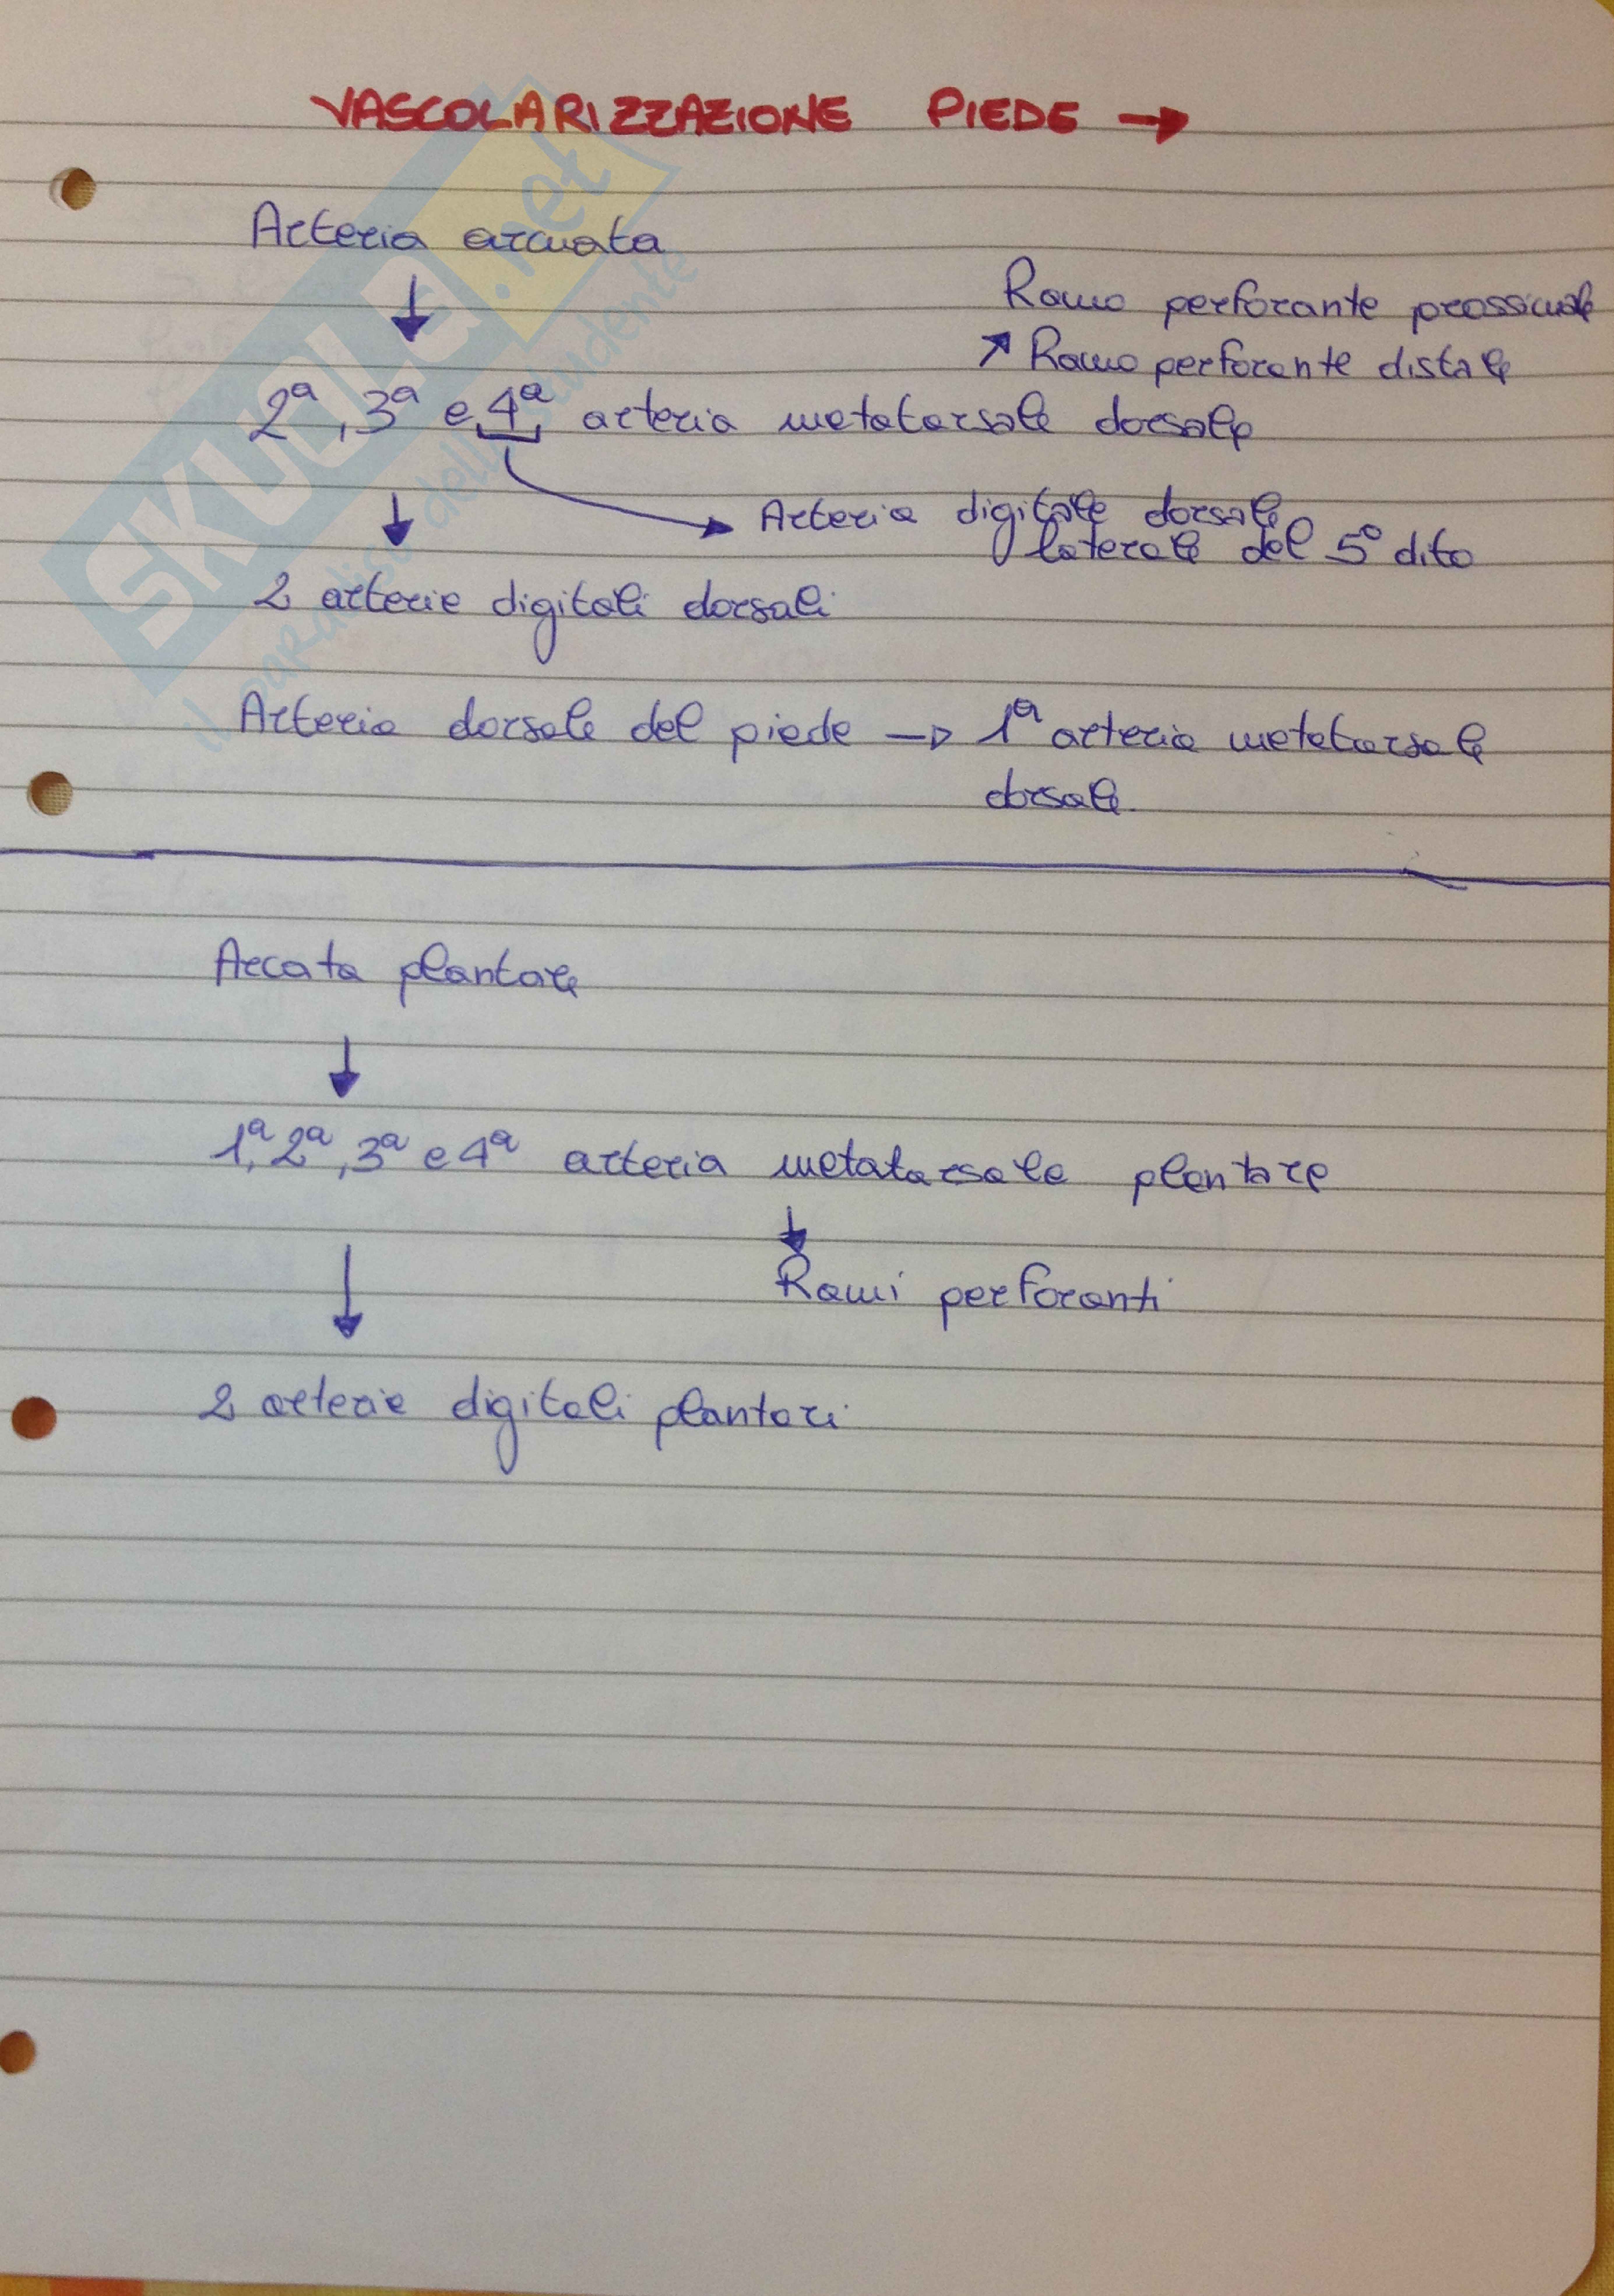 VASCOLARIZZAZIONE PIEDE →
Arteria arcuata
↓
Ramo perforante prossimale
↗ Ramo perforante distale
2ª, 3ª e 4ª arteria metatarsale dorsale
↓ → Arteria digitale dorsale
laterale del 5° dito
2 arterie digitali dorsali
Arteria dorsale del piede → 1ª arteria metatarsale
dorsale.
Arcata plantare
↓
1ª, 2ª, 3ª e 4ª arteria metatarsale plantare
↓
Rami perforanti
↓
2 arterie digitali plantari
SKUOLA.net
il paradiso dello studente